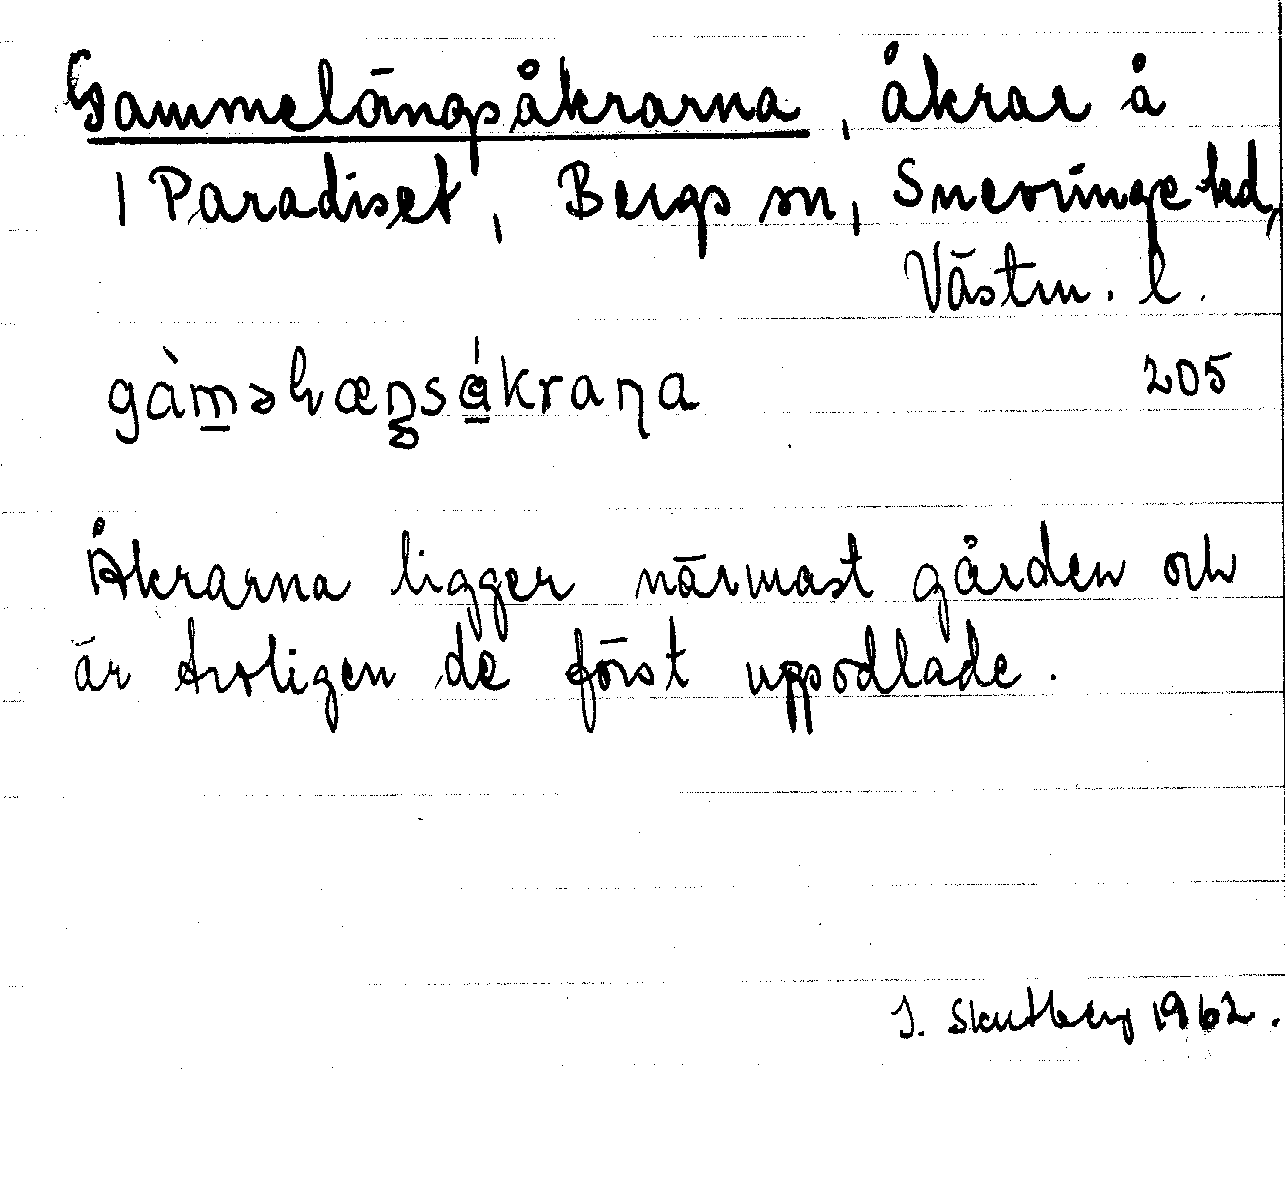 Gammelängsåkrarna, åkrar å
1 Paradiset, Bergs sn, Snevringe hd,
Västm. l.
gàm̲əlæŋsá̲kraɳa 205
Åkrarna ligger närmast gården och
är troligen de först uppodlade.
J. Skutberg 1962.